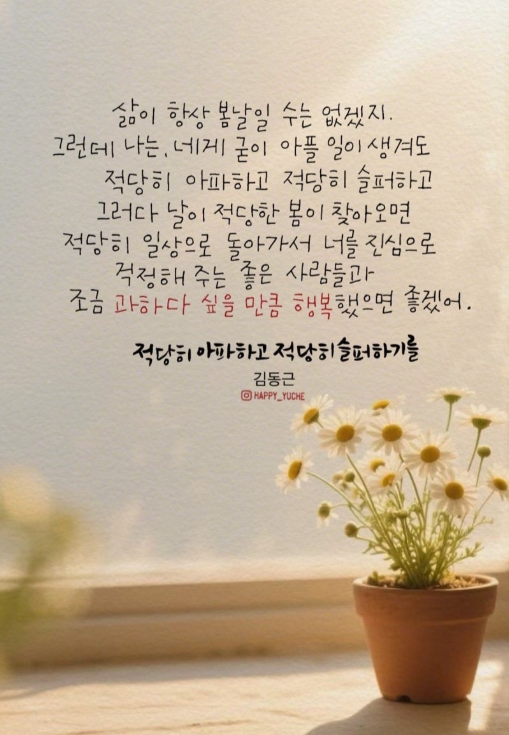 삶이 항상 봄날일 수는 없겠지.
그런데 나는, 네게 굳이 아플 일이 생겨도
적당히 아파하고 적당히 슬퍼하고
그러다 날이 적당한 봄이 찾아오면
적당히 일상으로 돌아가서 너를 진심으로
걱정해 주는 좋은 사람들과
조금 과하다 싶을 만큼 행복했으면 좋겠어.
적당히 아파하고 적당히 슬퍼하기를
김동근
HAPPY_YUCHE